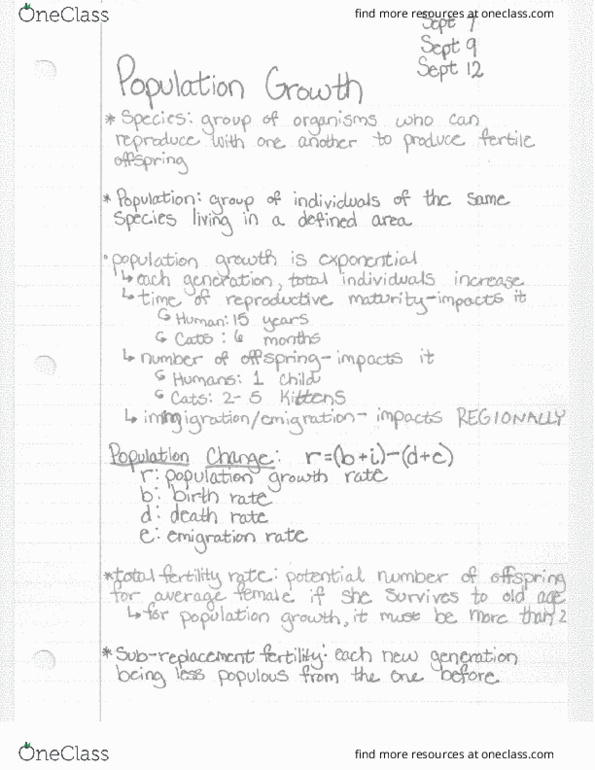 OneClass
find more resources at oneclass.com
Sept 7
Sept 9
Sept 12
Population Growth
* Species: group of organisms who can
reproduce with one another to produce fertile
offspring
* Population: group of individuals of the same
species living in a defined area
• population growth is exponential
↳ each generation, total individuals increase
↳ time of reproductive maturity - impacts it
↳ Human: 15 years
↳ Cats: 6 months
↳ number of offspring - impacts it
↳ Humans: 1 child
↳ Cats: 2-5 Kittens
↳ immigration/emigration - impacts REGIONALLY
Population Change: r=(b+i)-(d+e)
r: population growth rate
b: birth rate
d: death rate
e: emigration rate
* total fertility rate: potential number of offspring
for average female if she survives to old age
↳ for population growth, it must be more than 2
* Sub-replacement fertility: each new generation
being less populous from the one before
OneClass
find more resources at oneclass.com